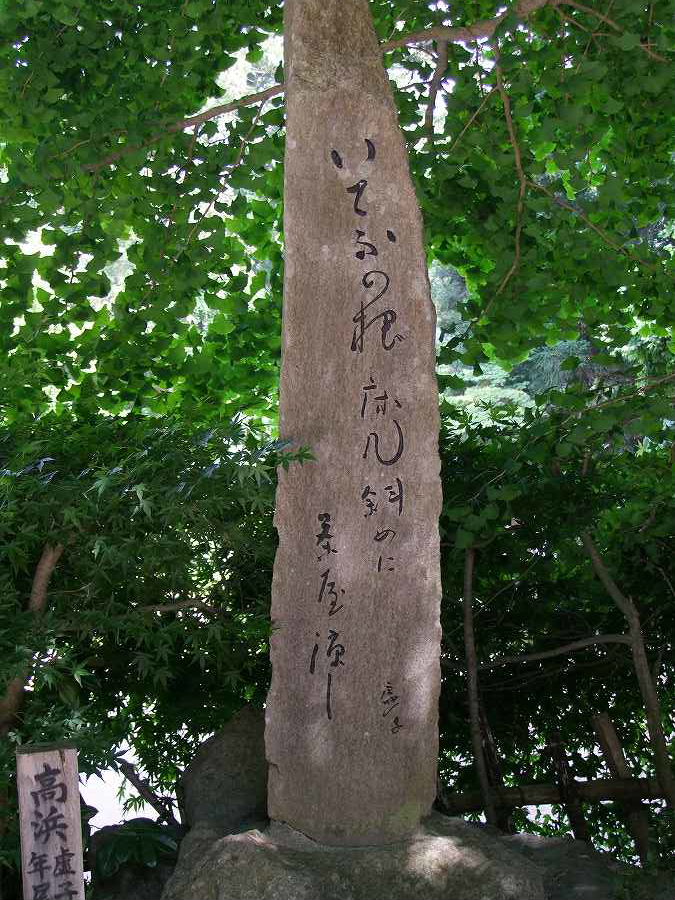 いてふの根床几斜めに
茶屋涼し
虚子
高浜
虚子
年尾